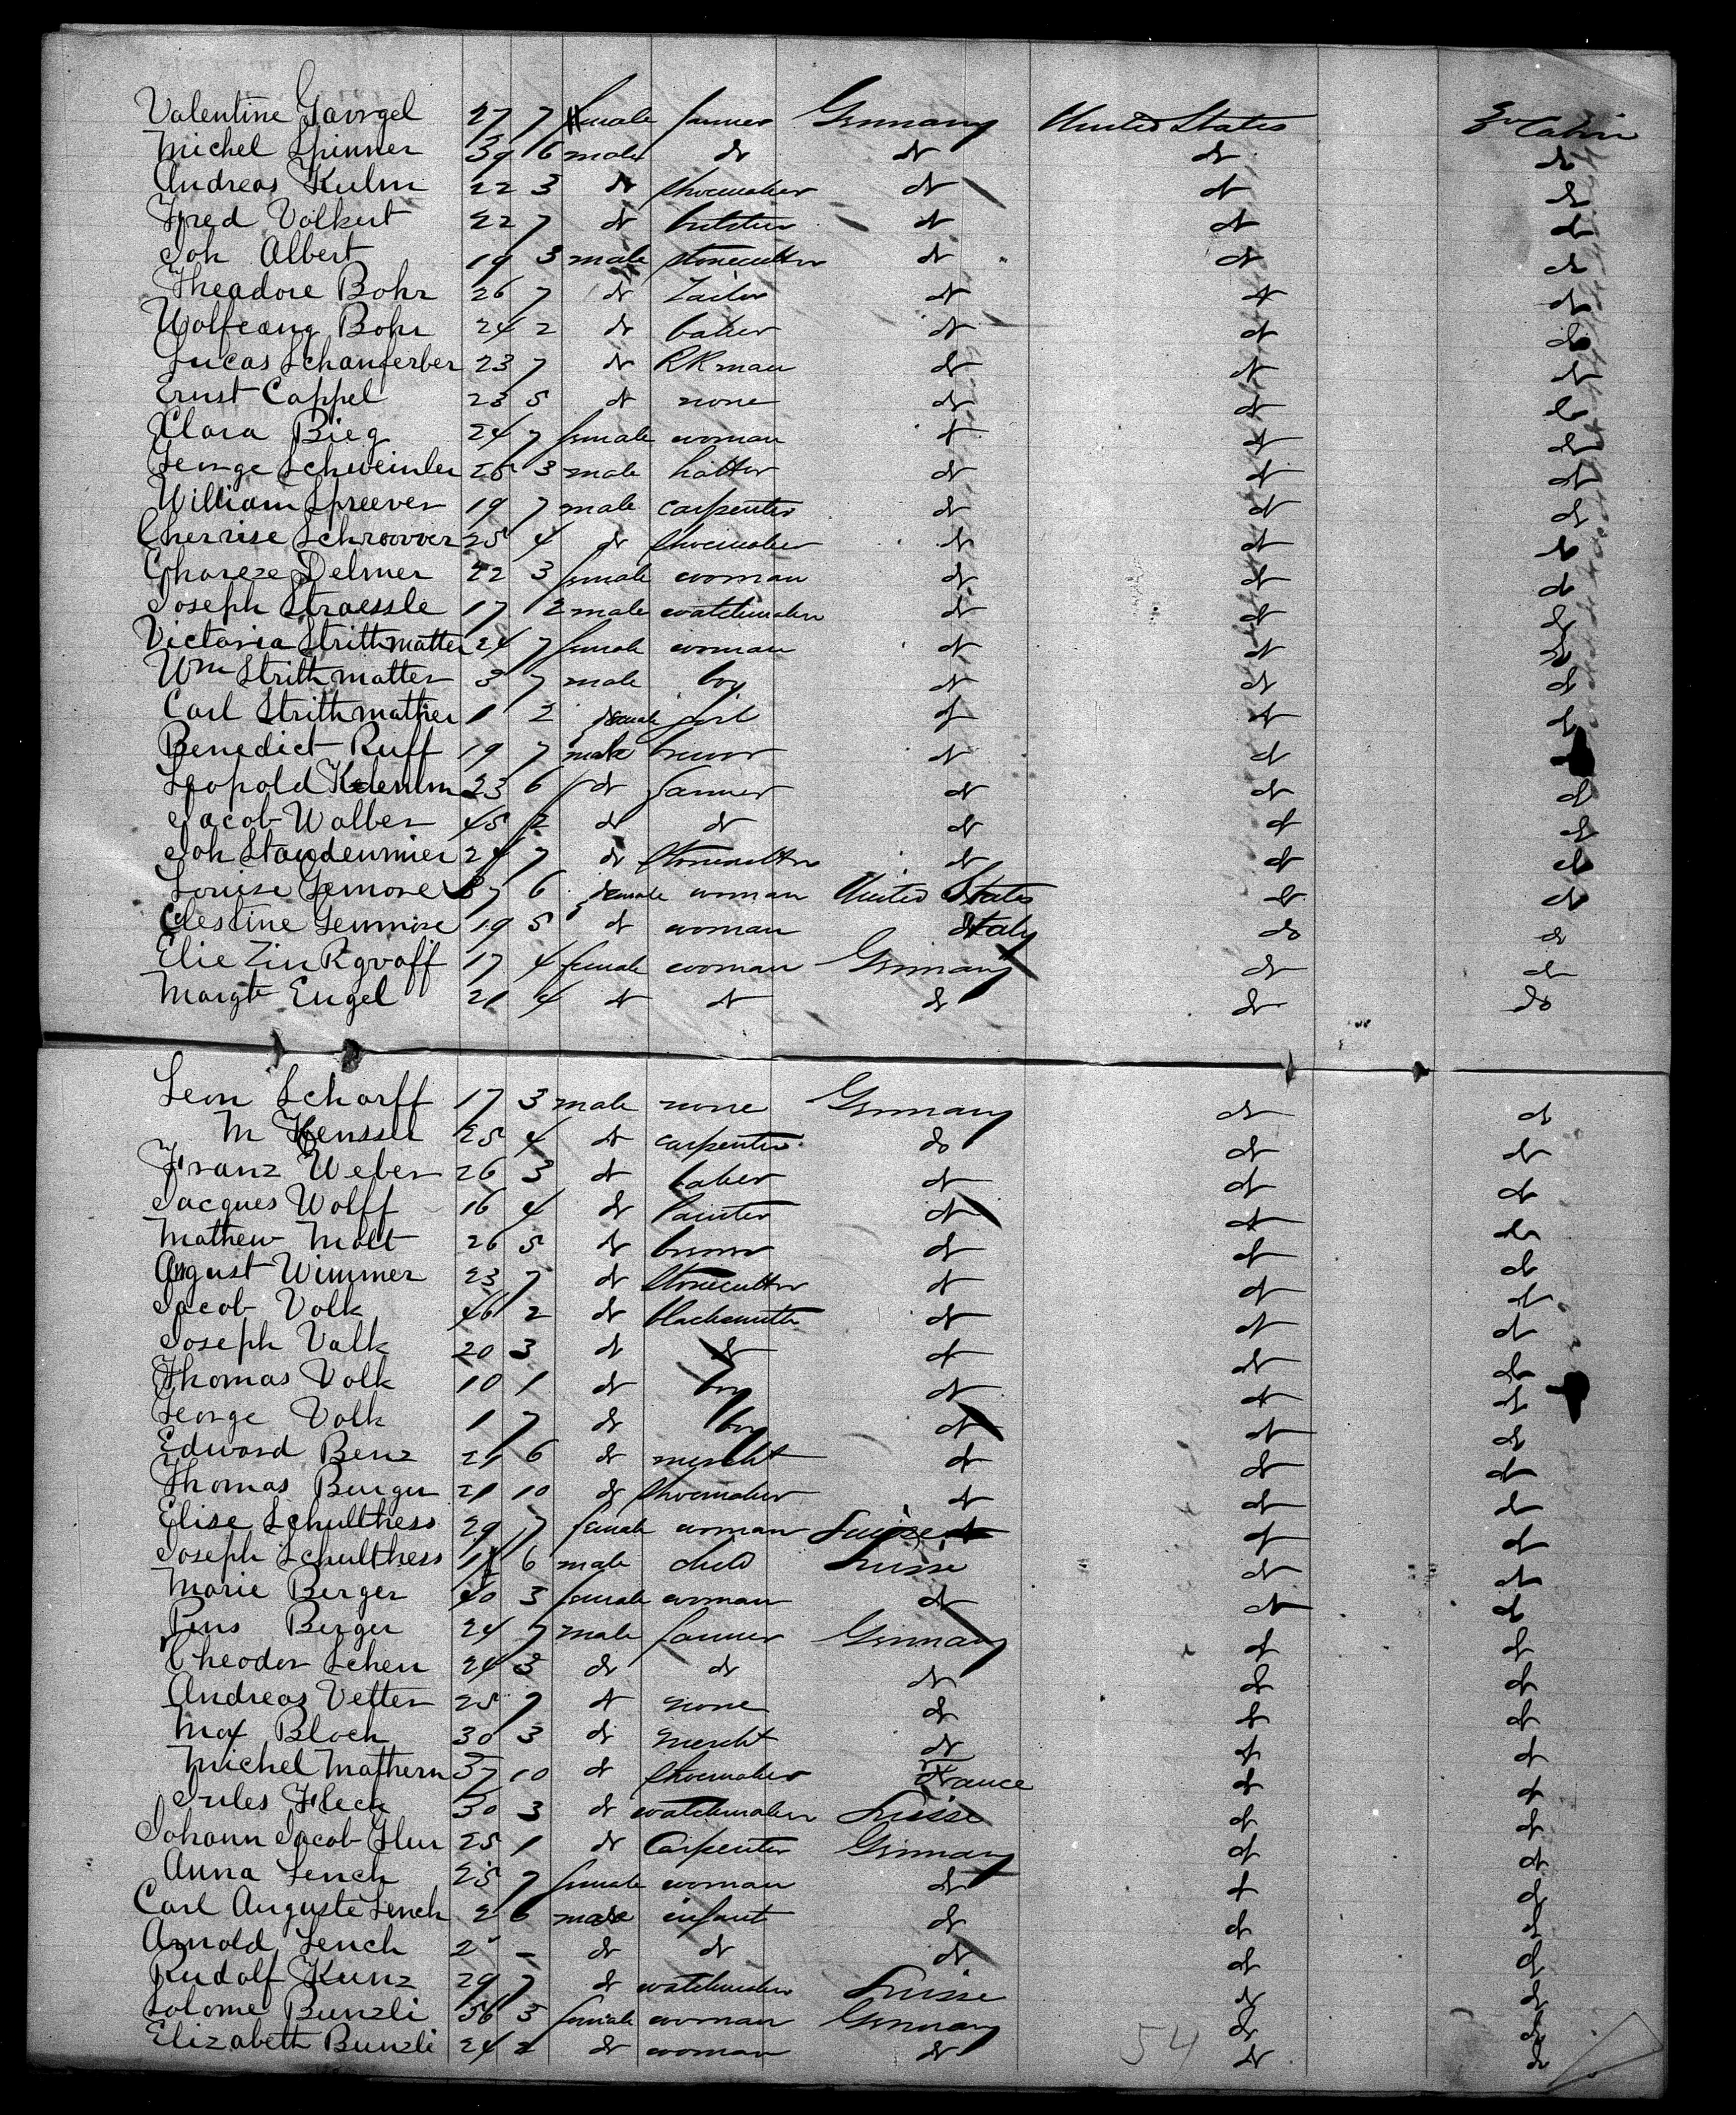 Valentine Gavrgel 27 7 female farmer Germany United States 2n Cabin
Michel Spinner 39 6 male do do do do
Andreas Kulm 22 3 do shoemaker do do do
Fred Volkert 22 7 do do do do
Joh Albert 19 3 male stonecutter do do do
Theadore Bohr 26 7 do Tailor do do do
Wolfgang Bohr 24 2 do baker do do do
Lucas Schanferber 23 7 do RR man do do do
Ernst Cappel 23 5 do none do do do
Clara Bieg 24 7 female woman do do do
George Schweinler 25 3 male hatter do do do
William Spreever 19 7 male carpenter do do do
Cherrise Schroover 25 4 do shoemaker do do do
Delmer 22 3 female woman do do do
Joseph Straessle 17 2 male watchmaker do do do
Victoria Strithmatter 24 7 female woman do do do
Wm Strithmatter 3 7 male boy do do do
Carl Strithmather 1 2 female girl do do do
Benedict Ruff 19 7 male brewer do do
Leopold 23 6 do farmer do do do
Jacob Walber 45 2 do do do do do
Joh Staudenmier 24 7 do stonecutter do do do
Louise Lemore 37 6 female woman United States do do
Celestine Lemmore 19 5 do woman Italy do do
Elie Zinkgraff 17 4 female woman Germany do do
Margt Engel 21 4 do do do do do
Leon Scharff 17 3 male none Germany do do
M Heusser 25 4 do carpenter do do do
Franz Weber 26 3 do baker do do do
Jacques Wolff 16 4 do painter do do do
Mathew Molt 26 5 do brewer do do do
August Wimmer 23 7 do stonecutter do do do
Jacob Volk 46 2 do blacksmith do do do
Joseph Valk 20 3 do do do do do
Thomas Volk 10 1 do boy do do do
George Volk 1 7 do boy do do do
Edward Benz 21 6 do mercht do do do
Thomas Burger 21 10 do shoemaker do do do
Elise Schulthess 29 7 female woman Suisse do do
Joseph Schulthess 6 male child Suisse do do
Marie Berger 40 3 female woman do do do
Pius Berger 24 7 male farmer Germany do do
Theodor Scheu 24 3 do do do do do
Andreas Vetter 25 7 do none do do do
Max Bloch 30 3 do mercht do do do
Michel Mathern 37 10 do shoemaker France do do
Jules Fleck 30 3 do watchmaker Suisse do do
Johann Jacob Flur 25 1 do Carpenter Germany do do
Anna Lench 25 7 female woman do do do
Carl Auguste Lench 2 6 male infant do do do
Arnold Lench 2 - do do do do do
Rudolf Kunz 29 7 do watchmaker Suisse do do
Solome Bunzli 56 3 female woman Germany do do
Elizabeth Bunzli 24 2 do woman do do do
54